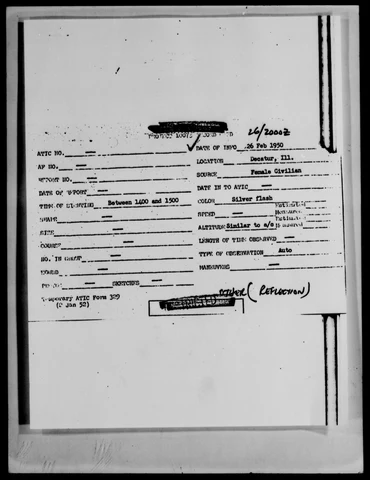 26/2000Z
ATIC NO. —
AF NO. —
REPORT NO. —
DATE OF REPORT —
TIME OF SIGHTING Between 1400 and 1500
SHAPE —
SIZE —
COURSE —
NO. IN GROUP —
SOUND —
PHOTOS — SKETCHES —
Temporary ATIC Form 329
(2 Jan 52)
DATE OF INFO 26 Feb 1950
LOCATION Decatur, Ill.
SOURCE Female Civilian
DATE IN TO ATIC —
COLOR Silver flash
SPEED — Estimated Measured
ALTITUDE Similar to a/c Estimated Measured
LENGTH OF TIME OBSERVED —
TYPE OF OBSERVATION Auto
MANEUVERS —
OTHER (REFLECTION)